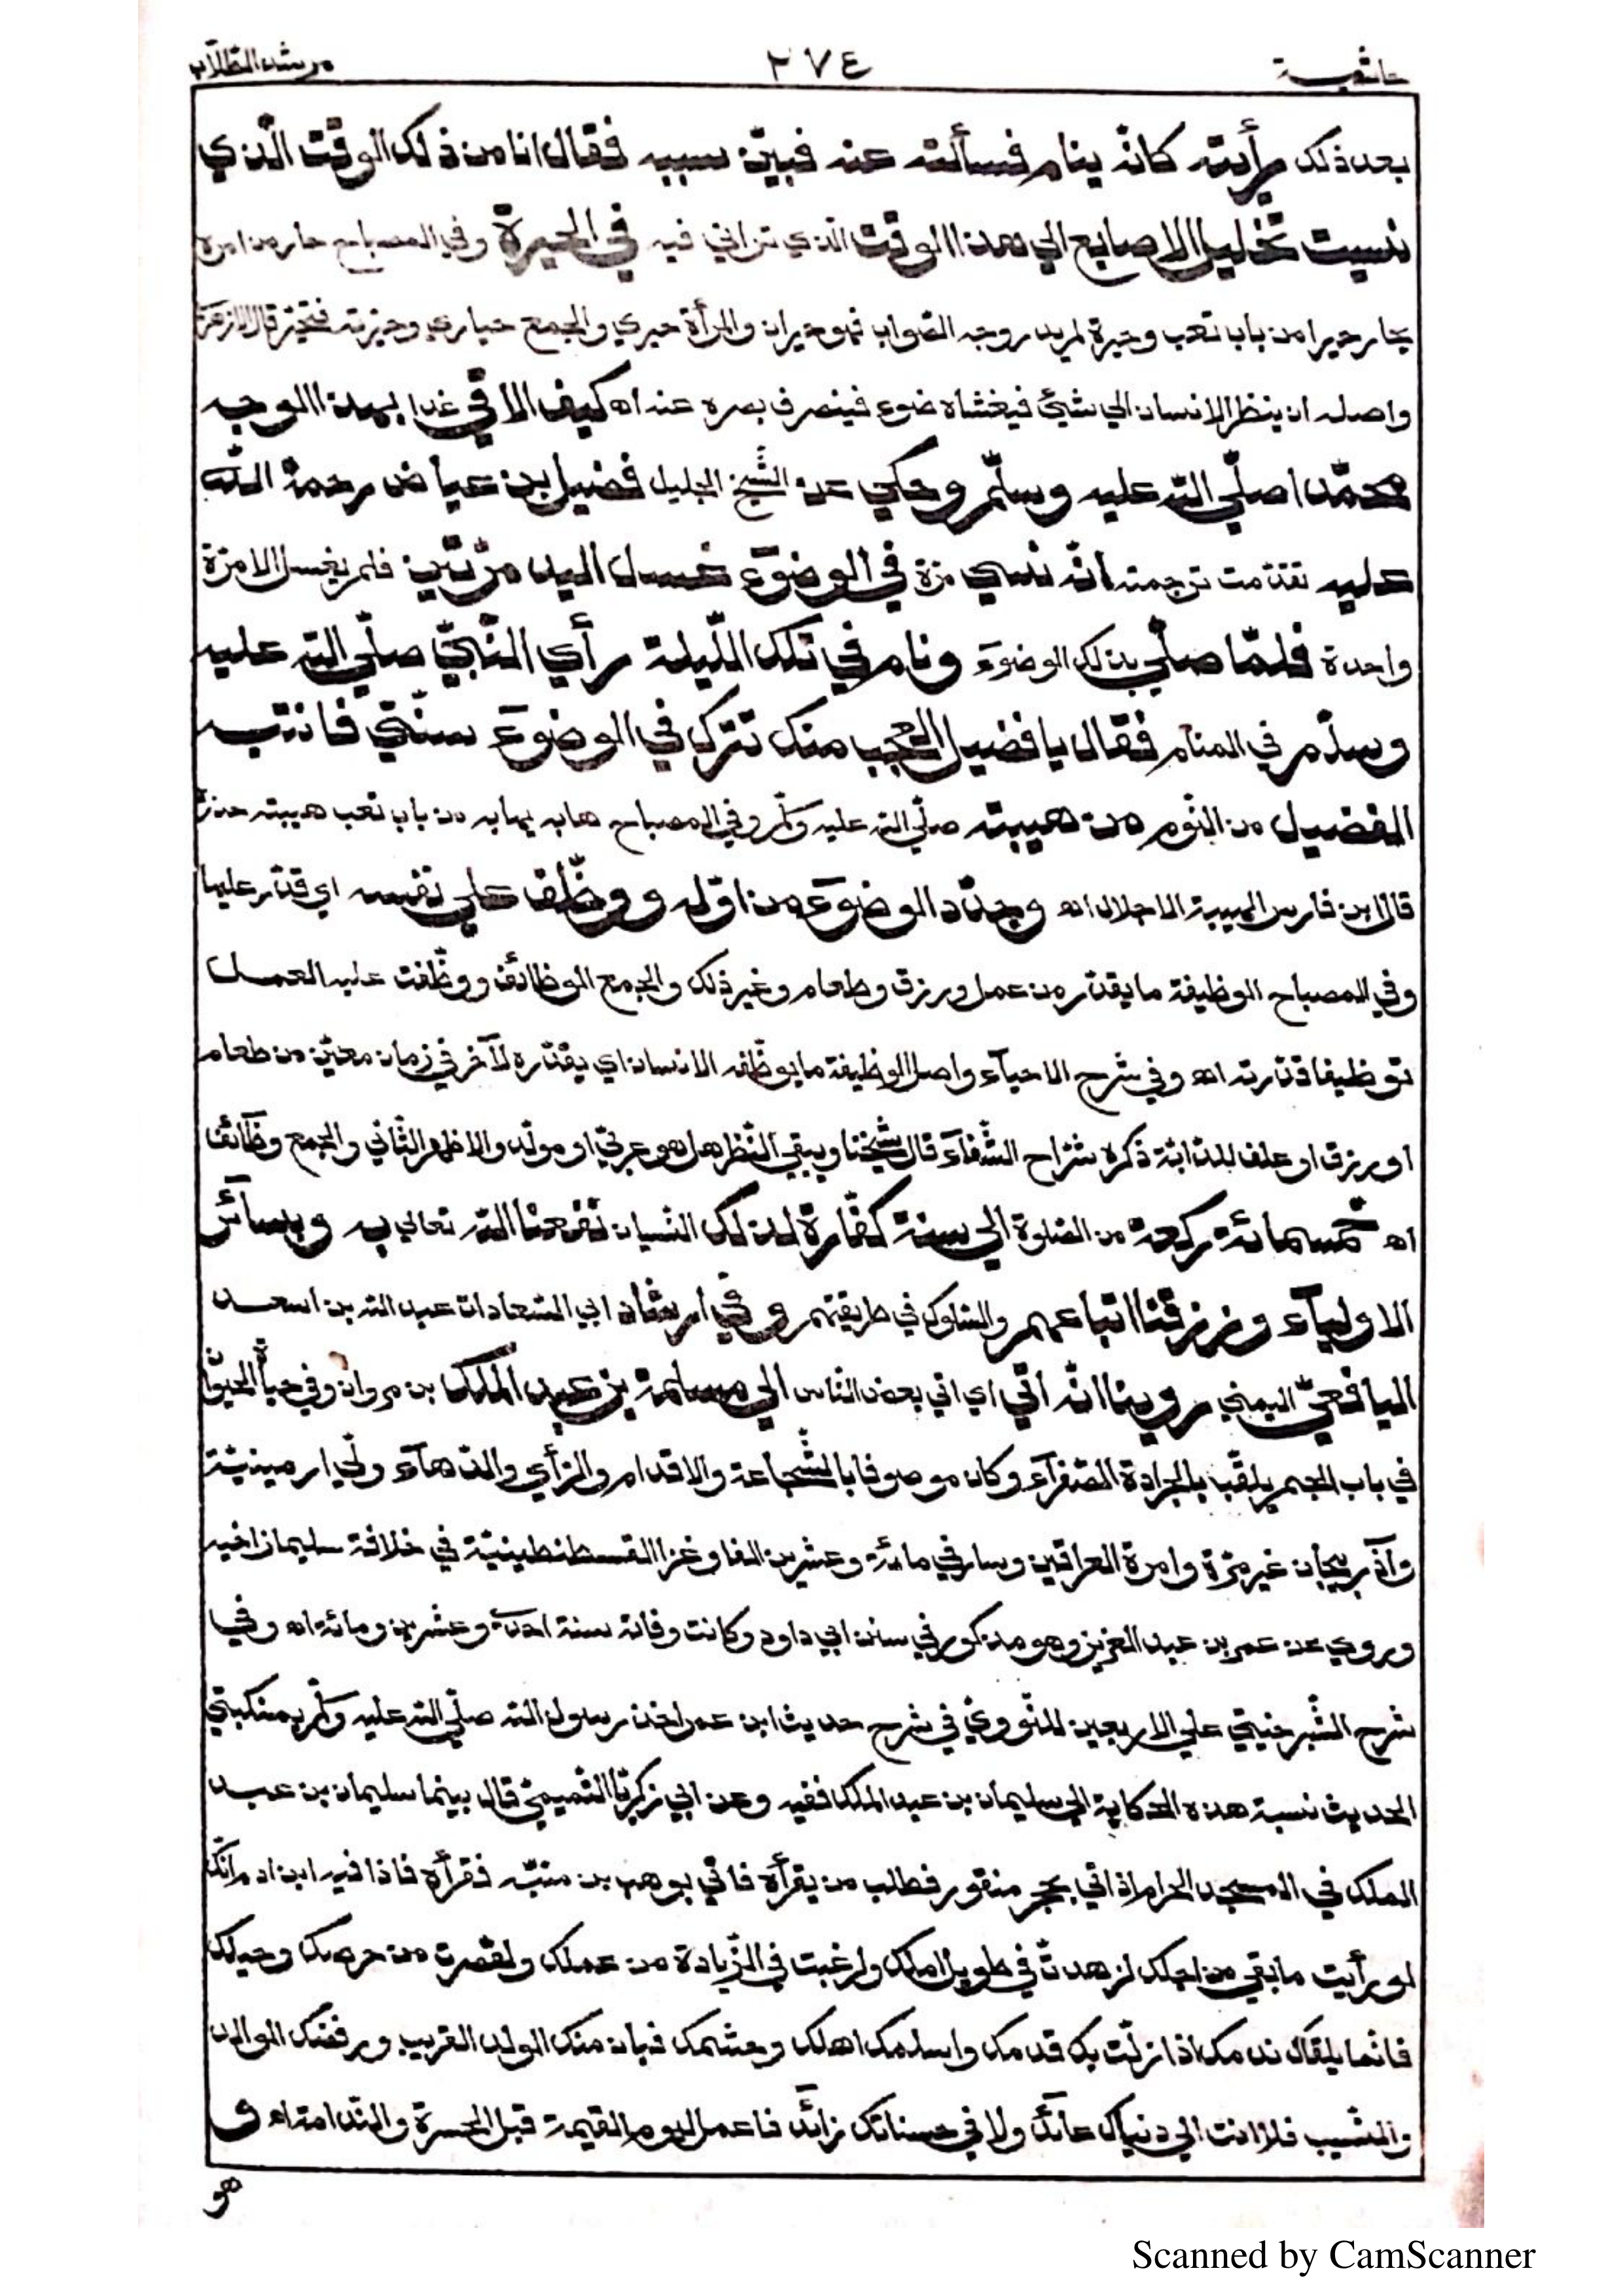 حاشية ٢٧٤ مرشد الطّلّاب
بعد ذلك رأيته كانّه ينام فسألته عنه فبيّن سببه فقال انا من ذلك الوقت الّذي
نسيت تخليل الاصابع الي هذا الوقت الّذي تراني فيه في الحيرة وفي المصباح حار من امره
يحار حيرا من باب تعب وحيرة لم يدر وجه الصّواب فهو حيران والمرأة حيري والجمع حياري وحيّرته فتحيّر قال الازهري
واصله ان ينظر الانسان الي شيئ فيغشاه ضوء فينصرف بصره عنه اه كيف الاقي غدا بهذا الوجه
محمّدا صلّي اللّه عليه وسلّم وحكي عن الشّيخ الجليل فضيل بن عياض رحمة اللّه
عليه تقدّمت ترجمته انّه نسي مرّة في الوضوٓء غسل اليد مرّتين فلم يغسل الا مرّة
واحدة فلمّا صلّي بذلك الوضوٓء ونام في تلك اللّيلة رأي النّبيّ صلّي اللّه عليه
وسلّم في المنام فقال يا فضيل العجب منك تترك في الوضوٓء سنّتي فانتبه
الفضيل من النّوم من هيبته صلّي اللّه عليه وسلّم وفي المصباح هابه يهابه من باب تعب هيبته حذره
قال ابن فارس الهيبة الاجلال اه وجدّد الوضوٓء من اوّله ووظّف علي نفسه اي قدّر عليها
وفي المصباح الوظيفة ما يقدّر من عمل ورزق وطعام وغير ذلك والجمع الوظآئف ووظّفت عليه العمل
توظيفا قدّرته اه وفي شرح الاحيآء واصل الوظيفة ما يوظّفه الانسان اي يقدّره لآخر في زمان معيّن من طعام
او رزق او علف للدّابّة ذكره شرّاح الشّفآء قال شيخنا ويبقي النّظر هل هو عربيّ او مولّد والاظهر الثّاني والجمع وظآئف
اه خمسمائة ركعة من الصّلوة الي سنة كفّارة لذلك النّسيان نفعنا اللّه تعالي به وبسآئر
الاوليآء ورزقنا اتّباعهم والسّلوك في طريقتهم وفي ارشاد ابي السّعادات عبد اللّه بن اسعد
اليافعيّ اليمني روينا انّه اتي اي اتي بعض النّاس الي مسلمة بن عبد الملك بن مروان وفي حياة الحيوان
في باب الجيم يلقّب بالجرادة الصّفرآء وكان موصوفا بالشّجاعة والاقدام والرّأي والدّهآء ولّي ارمينيّة
وآذربيجان غير مرّة وامرة العراقين وسار في مائة وعشرين الفا وغزا القسطنطينيّة في خلافة سليمان اخيه
وروي عن عمر بن عبد العزيز وهو مذكور في سنن ابي داود وكانت وفاته سنة احدي وعشرين ومائة اه وفي
شرح الشّبرخيتي علي الاربعين للنّوويّ في شرح حديث ابن عمر اخذ رسول اللّه صلّي اللّه عليه وسلّم بمنكبيّ
الحديث نسبة هذه الحكاية الي سليمان بن عبد الملك ففيه وعن ابي زكريّا التّميميّ قال بينما سليمان بن عبد
الملك في المسجد الحرام اذ اتي بحجر منقور فطلب من يقرأه فاتي بوهب بن منبّه فقرأه فاذا فيه ابن ادم انّك
لو رأيت ما بقي من اجلك لزهدتّ في طويل املك ولرغبت في الزّيادة من عملك ولقصرت من حرصك وحيلك
فانّما يلقاك ندمك اذا زلّت بك قدمك واسلمك اهلك وحشمك فبان منك الولد القريب ورفضك الوالد
والنّسيب فلا انت الي دنياك عآئد ولا في حسناتك زآئد فاعمل ليوم القيمة قبل الحسرة والنّدامة اه و
هو
Scanned by CamScanner